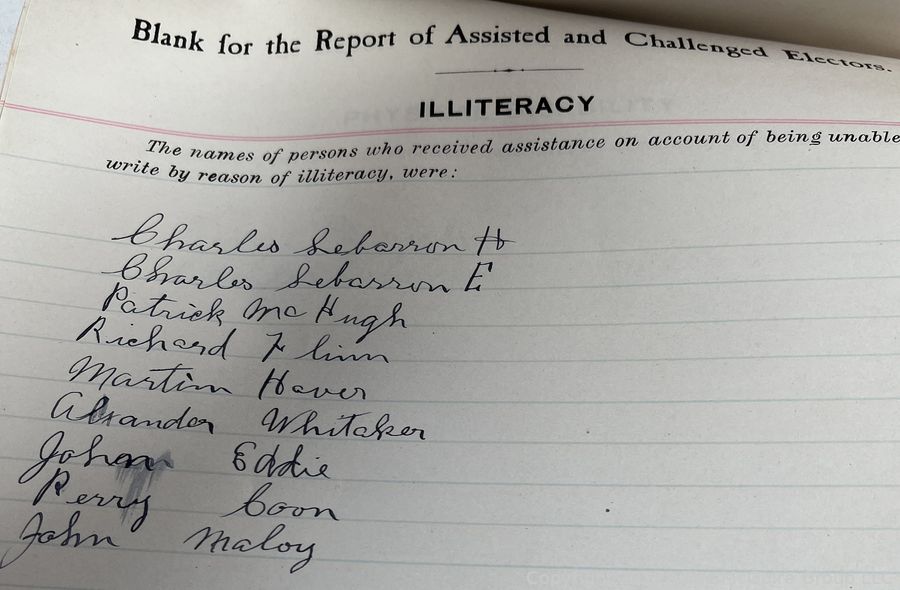 Blank for the Report of Assisted and Challenged Electors.
ILLITERACY
The names of persons who received assistance on account of being unable
write by reason of illiteracy, were:
Charles Lebarron H
Charles Lebarron E
Patrick McHugh
Richard Flinn
Martin Haver
Alxander Whitaker
John Eddie
Perry Coon
John Maloy